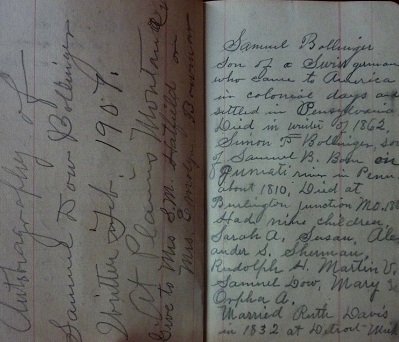 Autobiography of
Samuel Dow Bollinger
Written Feb. 1907.
At Plains Montana
Give to Mrs. S.M. Hatfield or
Mrs. Emolyn Bowman
Samuel Bollinger
son of a Swiss german
who came to America
in colonial days and
settled in Pensylvania
Died in winter of 1862.
Simon F Bollinger, son
of Samuel B. Born on
river in Penn.
about 1810, Died at
Burlington junction MO.
Had nine children
Sarah A. Susan, Alex
ander S. Sherman,
Rudolph H. Martin V.
Samuel Dow, Mary E
Orpha A.
Married Ruth Davis
in 1832 at Detroit Mich